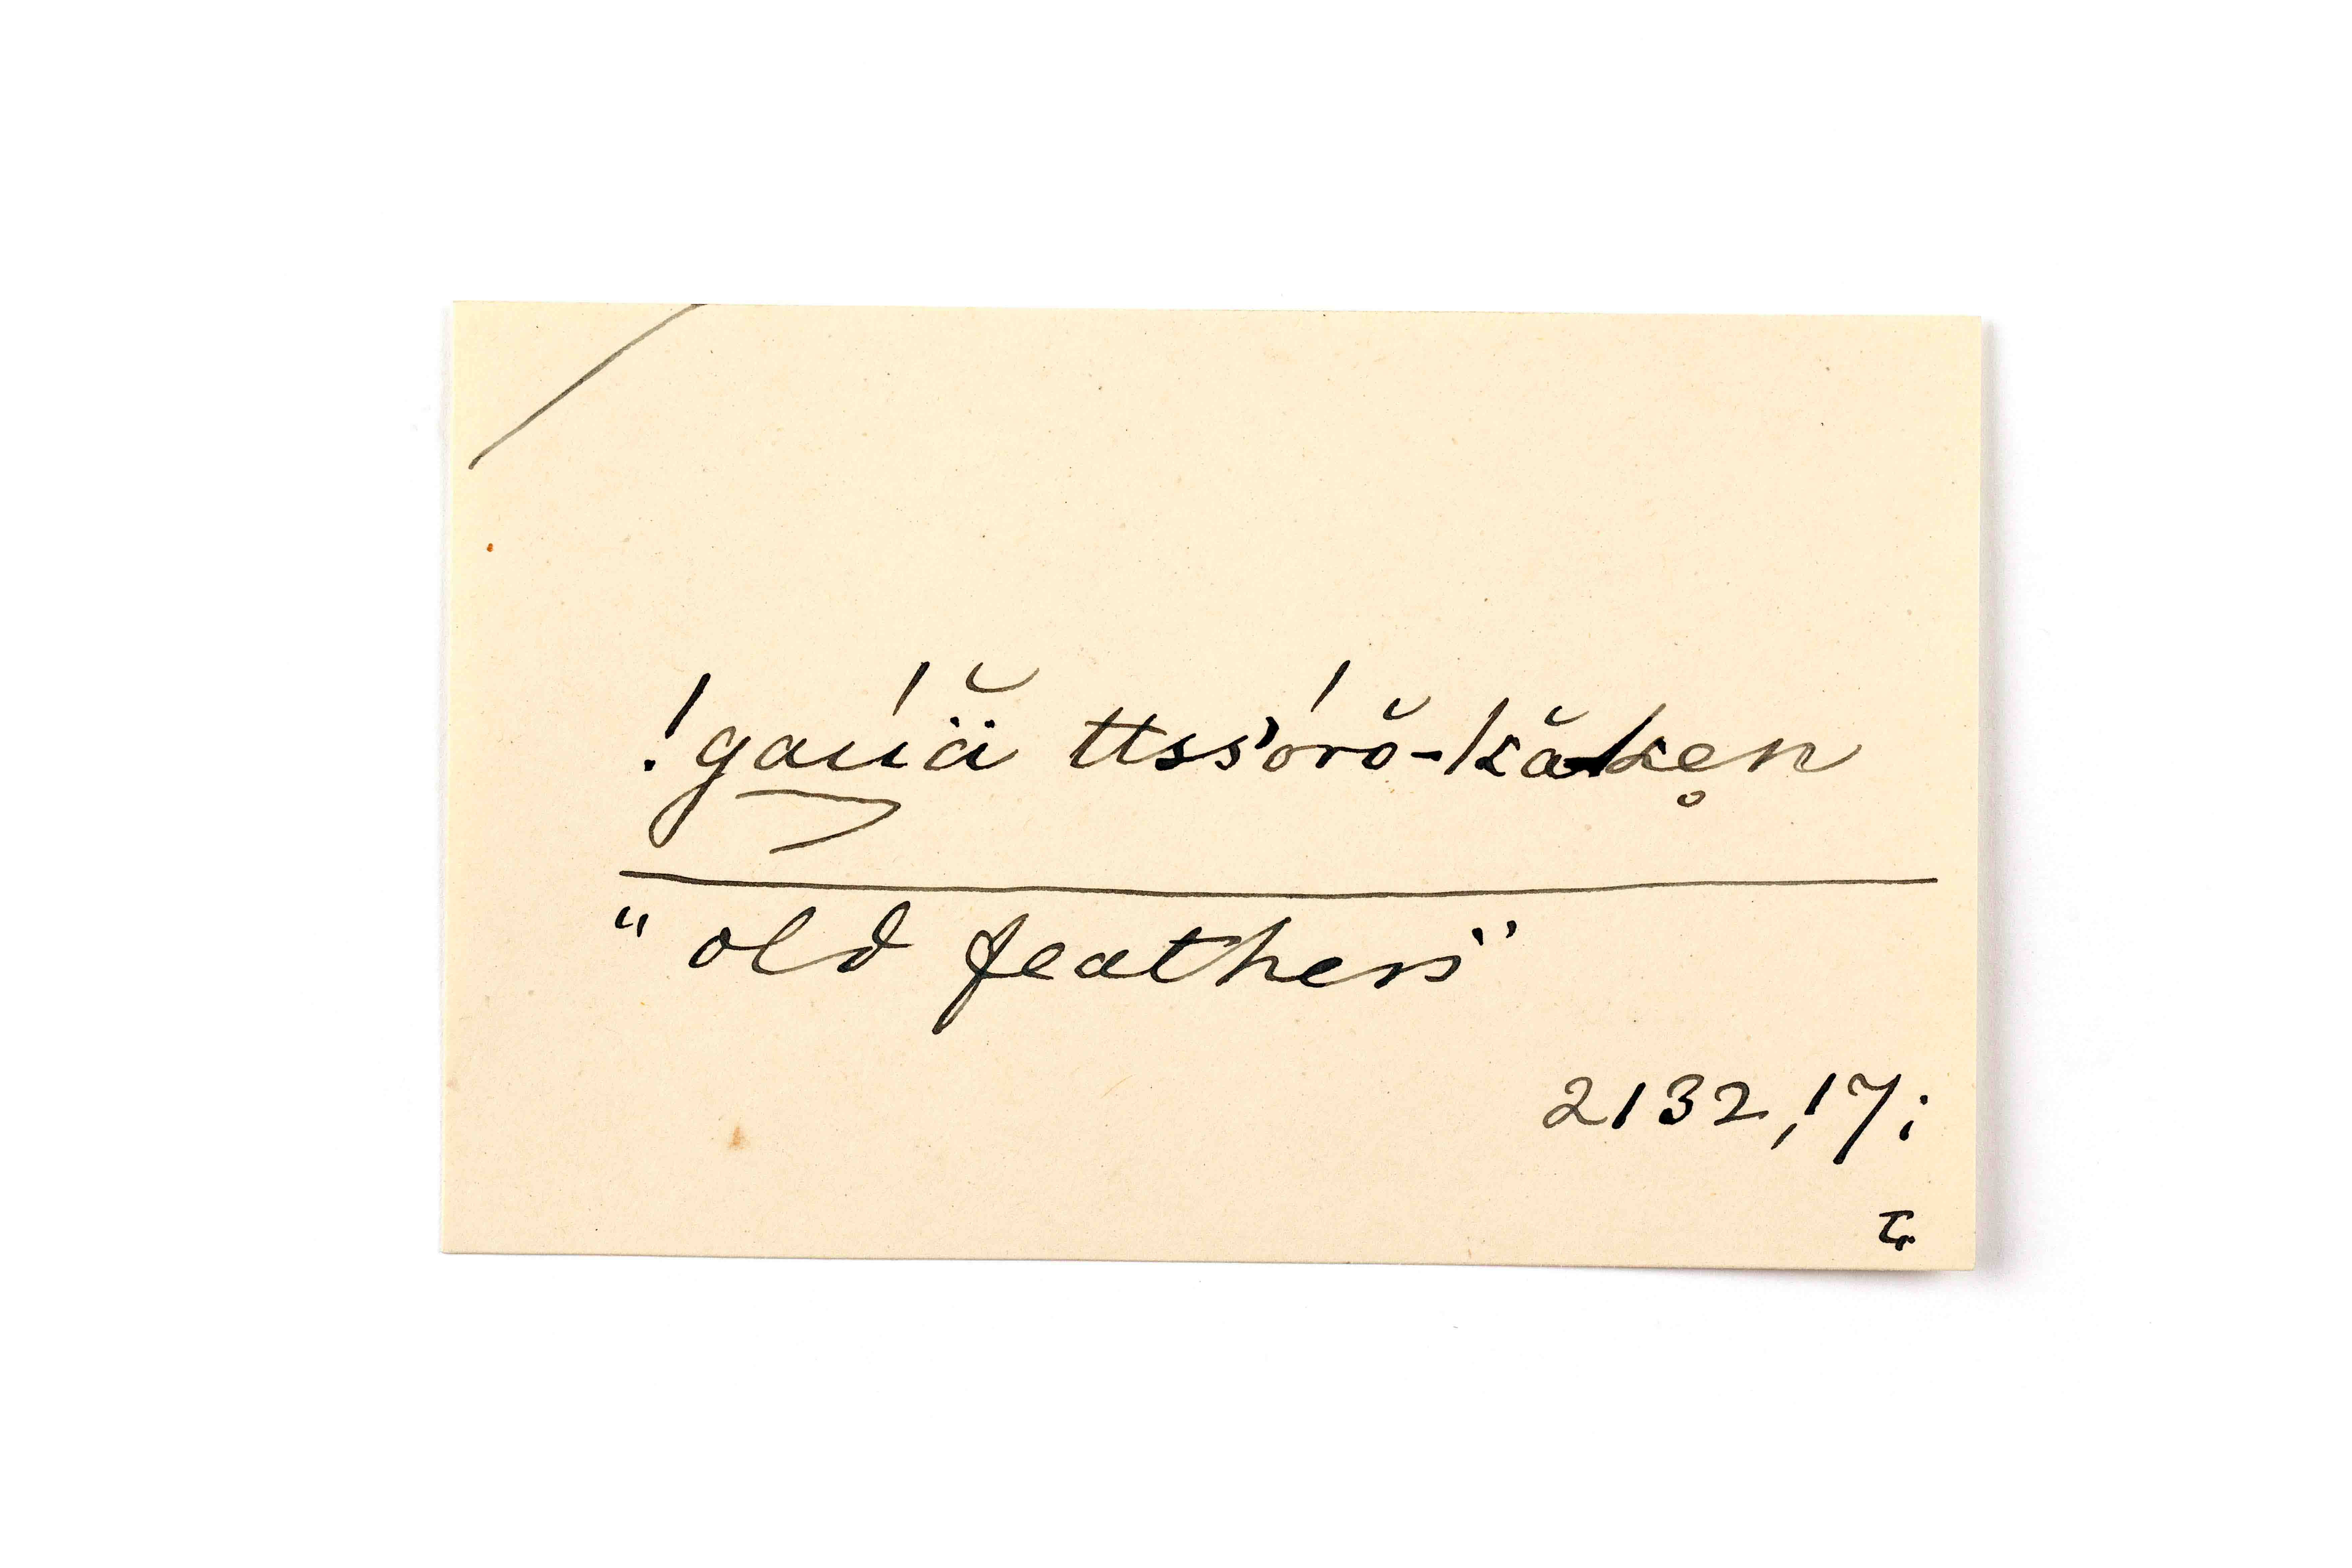 !gaúä̆ ttss'órŏ-kă-ke̥n
"old feathers"
2132,17;